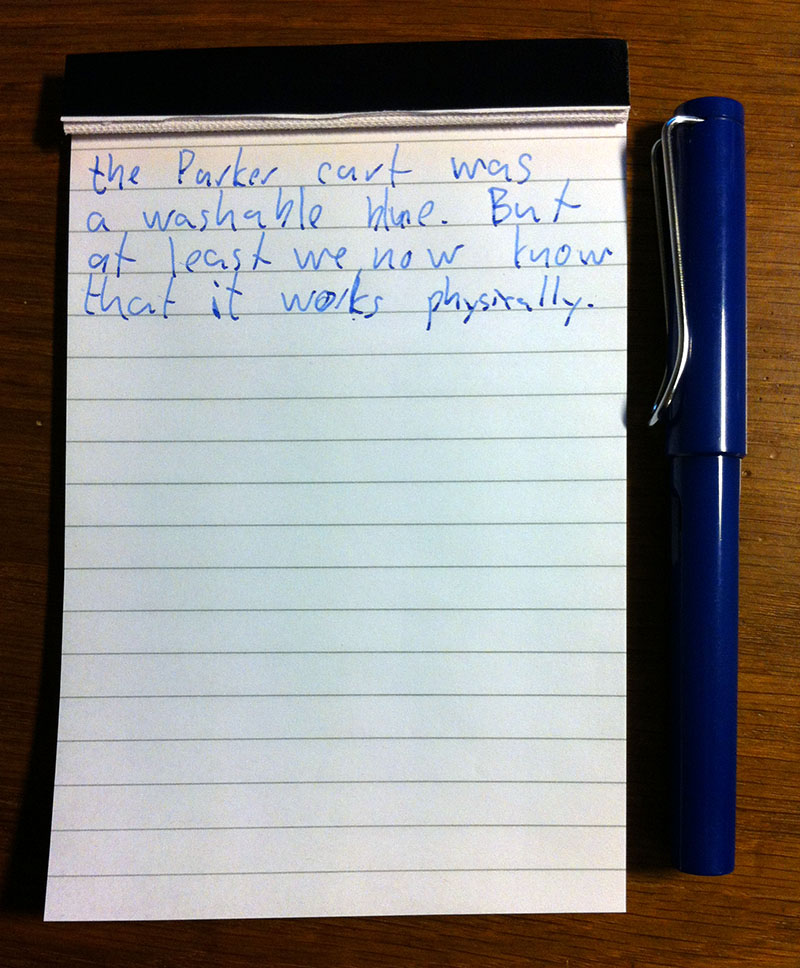 the Parker cart was
a washable blue. But
at least we now know
that it works physically.